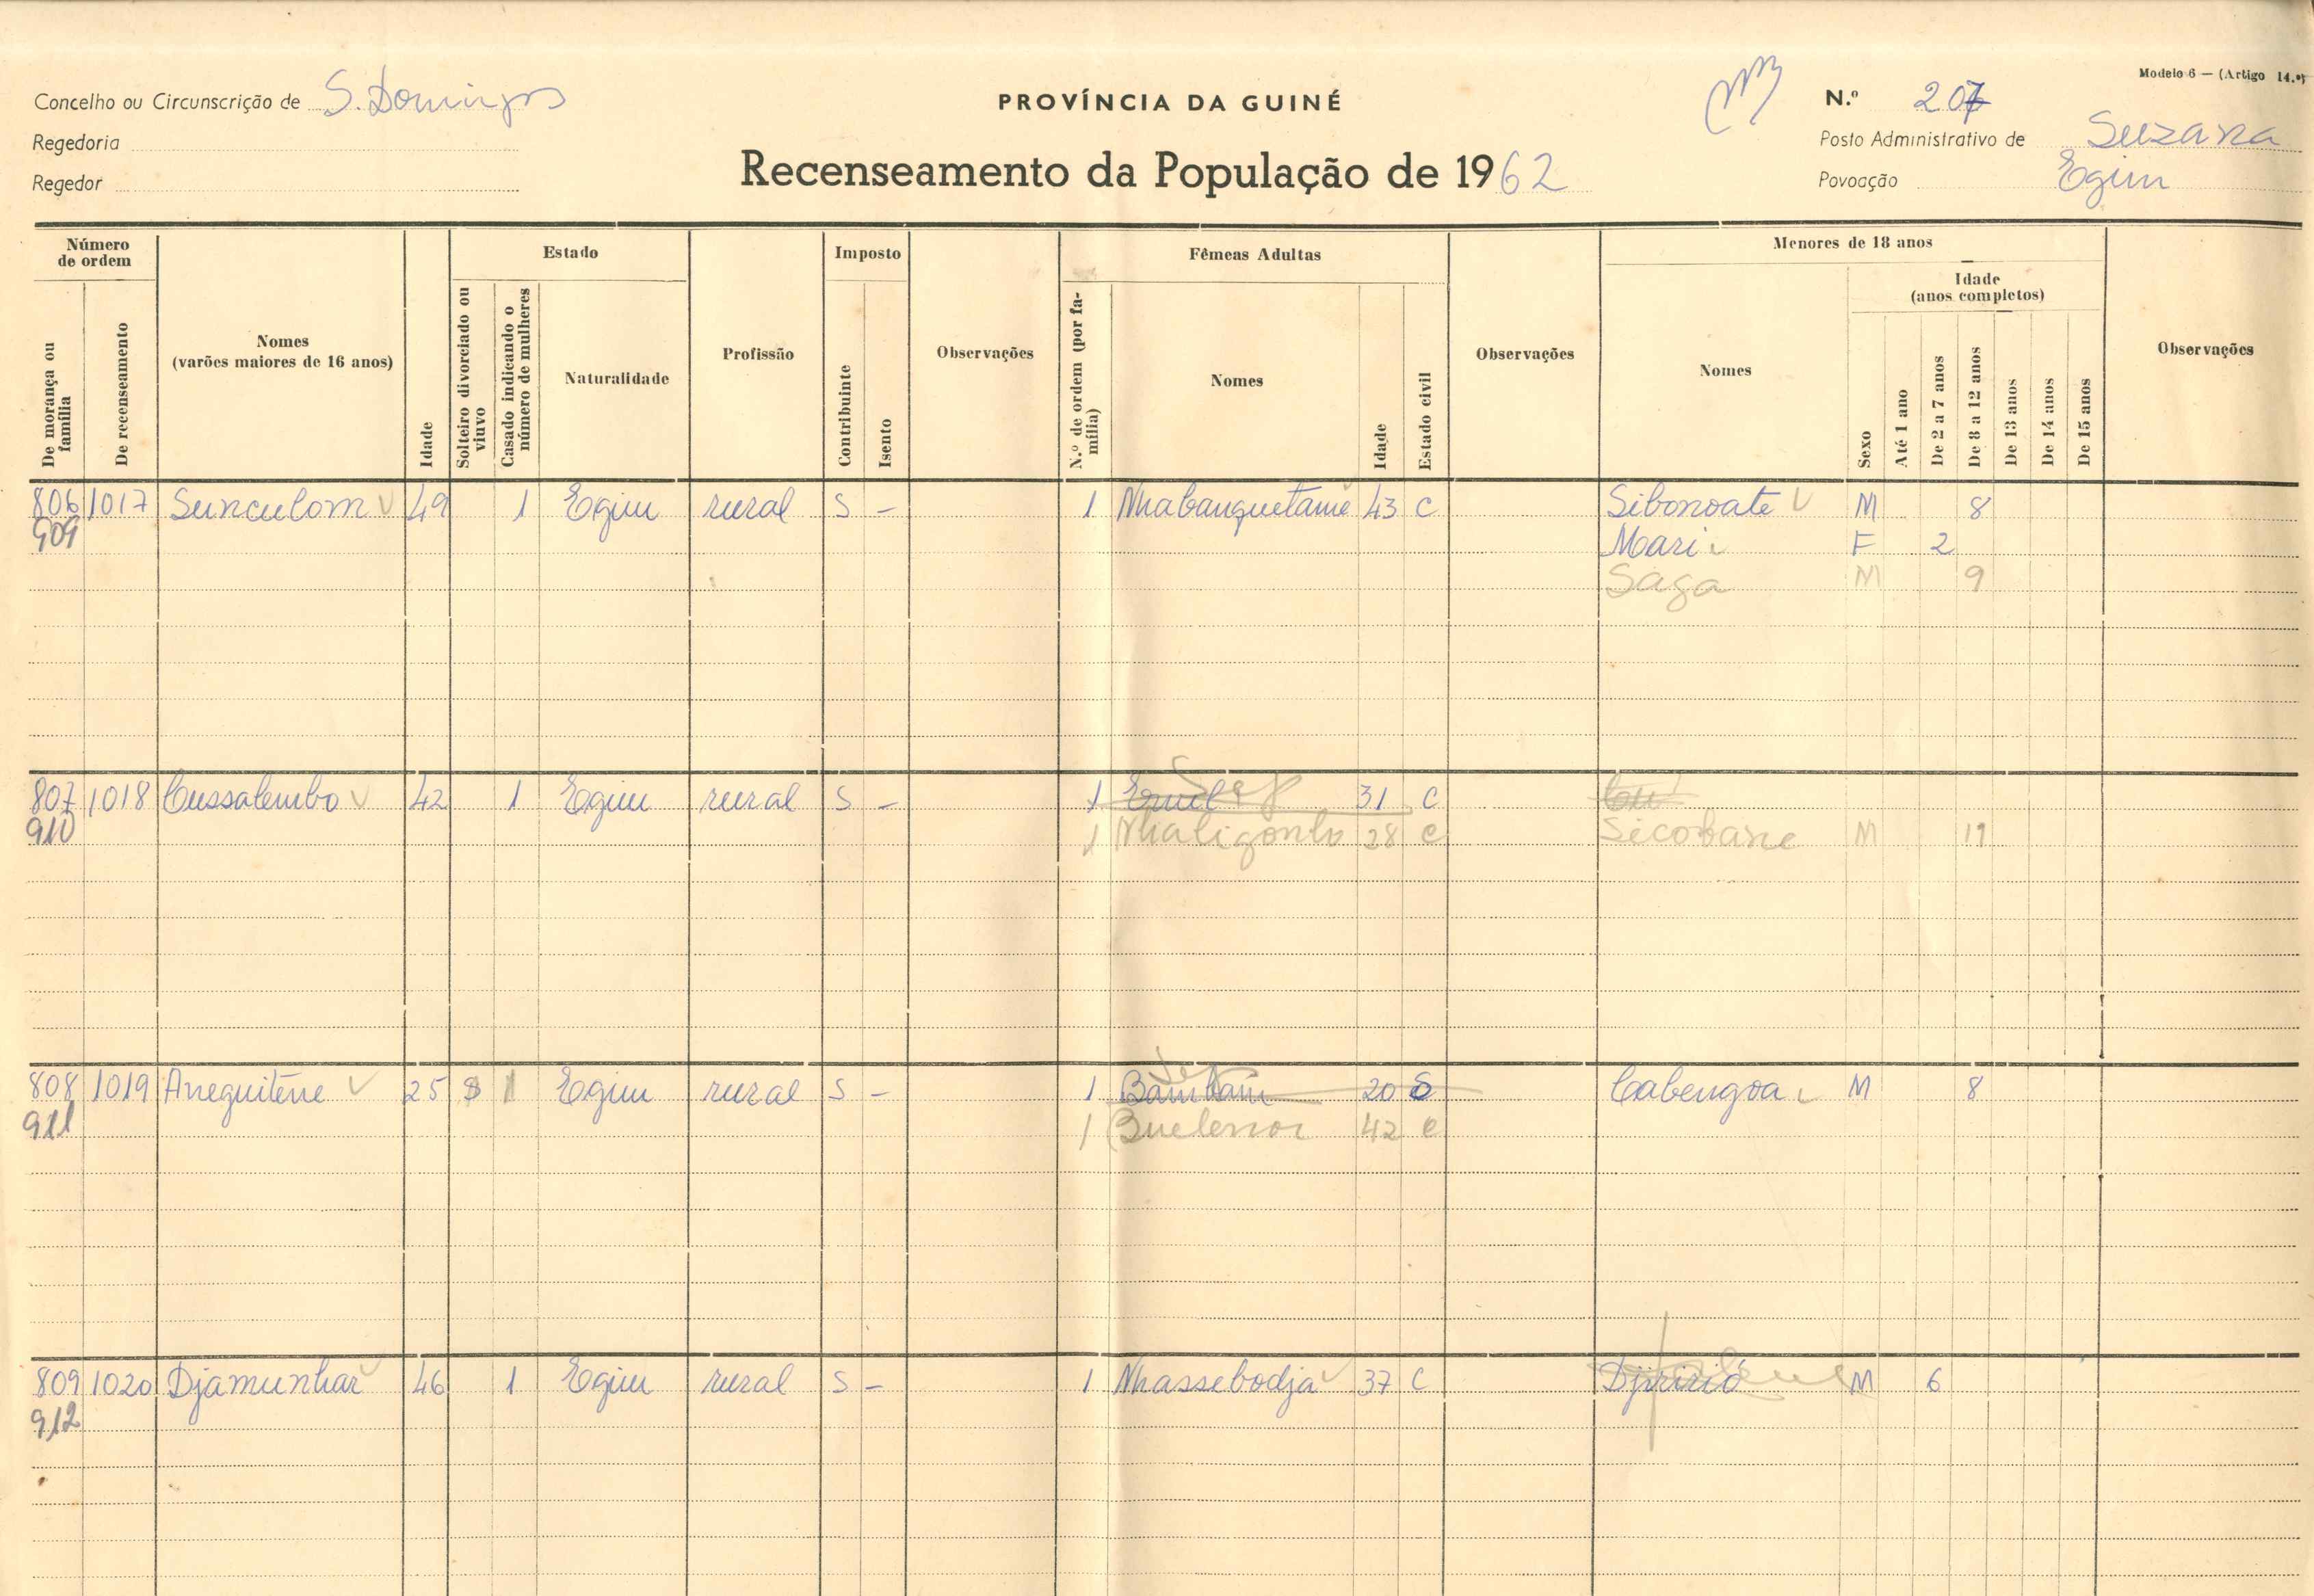 Modelo 6 — (Artigo 14.º)
Concelho ou Circunscrição de S. Domingos
PROVÍNCIA DA GUINÉ
N.º 207
Regedoria
Posto Administrativo de Suzana
Regedor
Recenseamento da População de 1962
Povoação Egim
Número de ordem
Estado
Imposto
Fêmeas Adultas
Menores de 18 anos
Idade (anos completos)
De morança ou família
De recenseamento
Nomes (varões maiores de 16 anos)
Idade
Solteiro divorciado ou viuvo
Casado indicando o número de mulheres
Naturalidade
Profissão
Contribuinte
Isento
Observações
N.º de ordem (por família)
Nomes
Idade
Estado civil
Observações
Nomes
Sexo
Até 1 ano
De 2 a 7 anos
De 8 a 12 anos
De 13 anos
De 14 anos
De 15 anos
Observações
806 1017 Sunculom 49 1 Egim rural S - 1 Nhabanquetame 43 C Sibonoate M 8
909 Mari F 2
Saga M 9
807 1018 Cussalembo 42 1 Egim rural S - 1 31 C
910 1 Nhaligonlo 28 C Sicobane M 11
808 1019 Areguitene 25 S 1 Egim rural S - 1 Bambam 20 S Cabengoa M 8
911 1 Buelenor 42 C
809 1020 Djamunhar 46 1 Egim rural S - 1 Nhassebodja 37 C Djiririó M 6
912